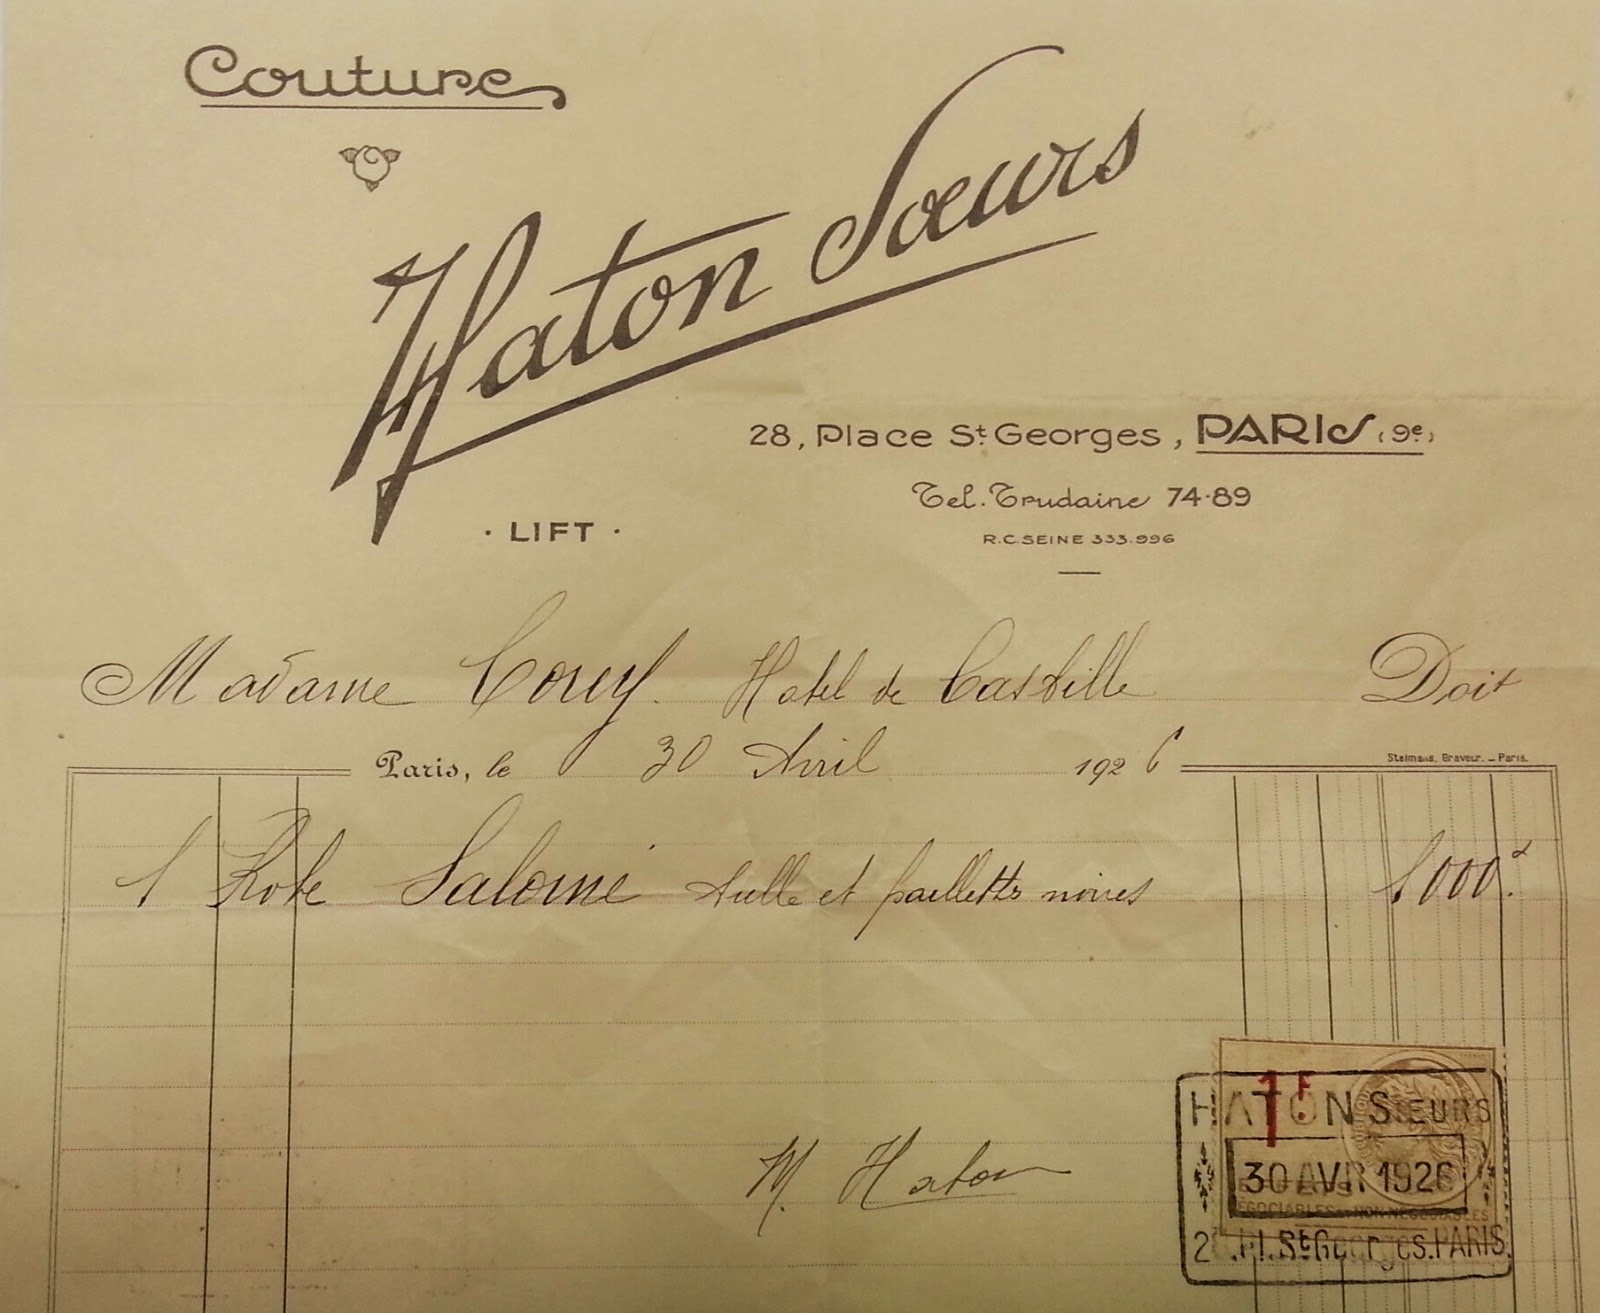 Couture
Haton Sœurs
28, Place St Georges, PARIS (9e)
Tel. Trudaine 74-89
· LIFT ·
R.C. SEINE 333.996
Madame Coucy. Hotel de Castille Doit
Paris, le 30 Avril 1926
Stelmans, Graveur. – Paris.
1 Robe Salomé tulle et paillettes noires 1000.
1F
HATON SŒURS
30 AVR 1926
NÉGOCIABLES ET NON NÉGOCIABLES
28. Pl. St Georges. PARIS
M. Haton